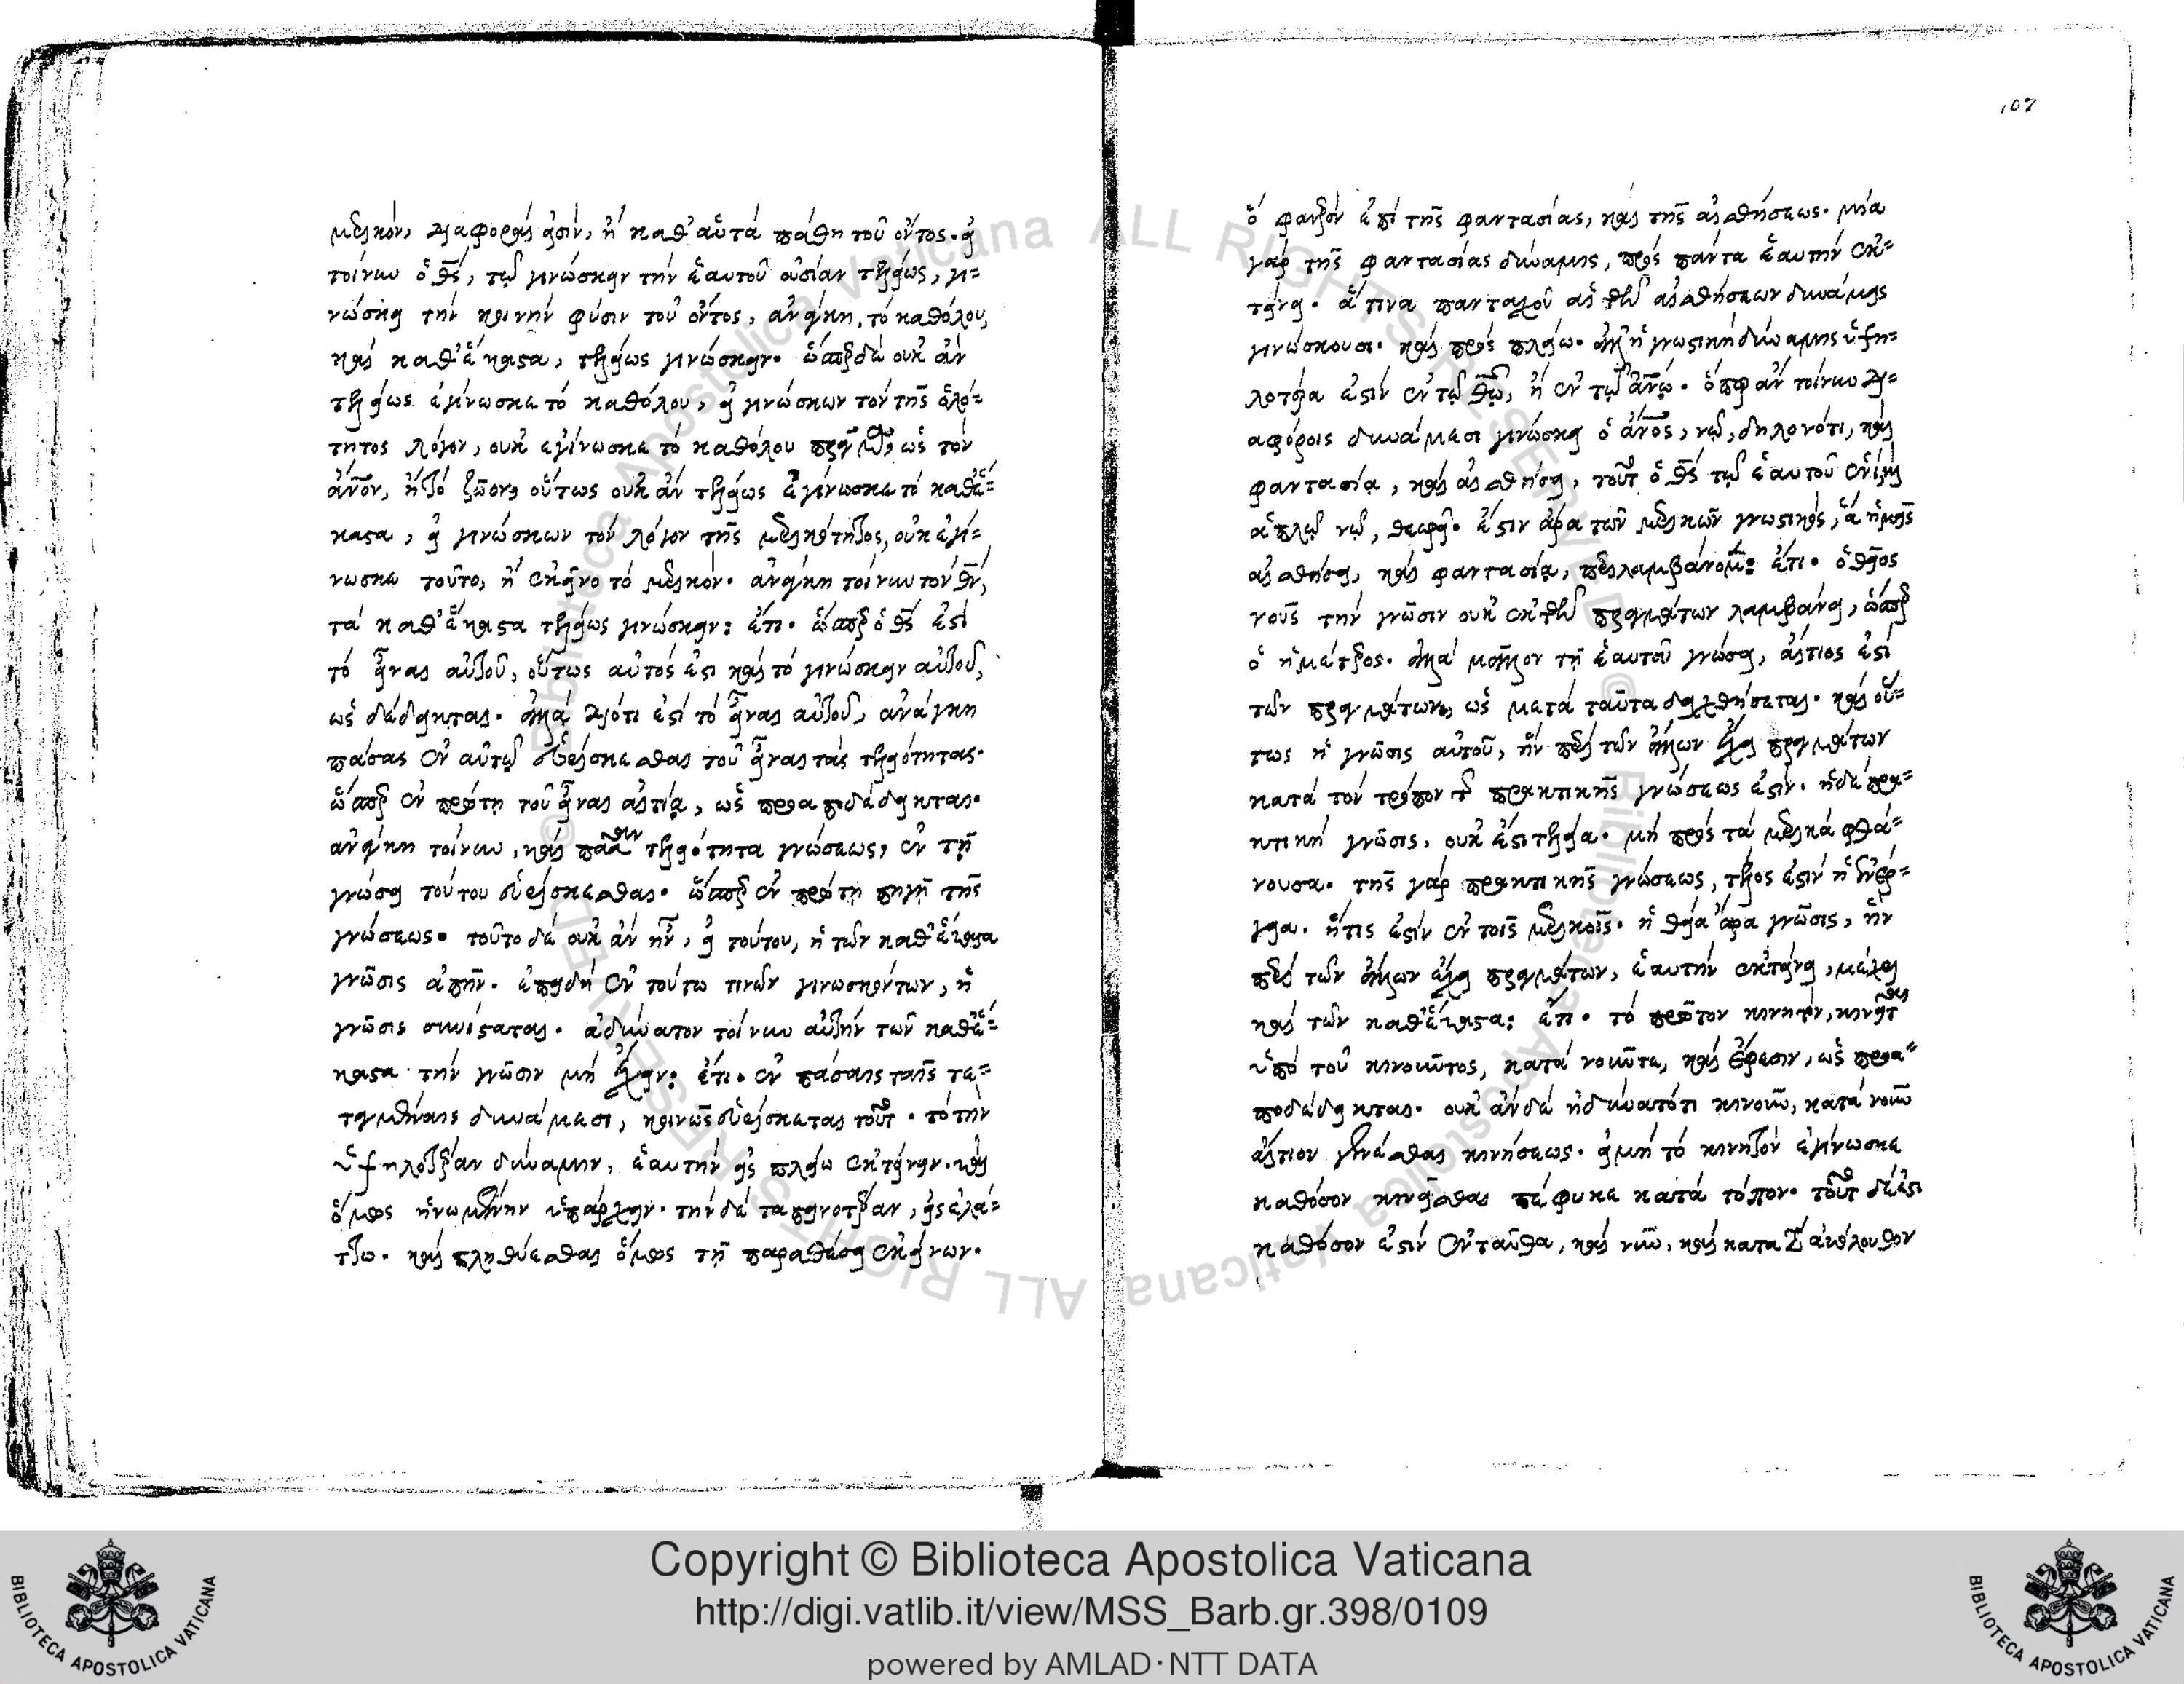 μερικὸν, διαφοραί εἰσιν, ἢ καθ' αὑτὰ πάθη τοῦ ὄντος. εἰ
τοίνυν ὁ θς, τῷ γινώσκειν τὴν ἑαυτοῦ οὐσίαν τελείως, γι=
νώσκει τὴν κοινὴν φύσιν τοῦ ὄντος, ἀνάγκη, τὸ καθόλου,
καὶ καθ' ἕκαστα, τελείως γινώσκειν. ὥσπερ δὲ οὐκ ἂν
τελείως ἐγίνωσκε τὸ καθόλου, εἰ γινώσκων τὸν τῆς ὁλό=
τητος λόγον, οὐκ ἐγίνωσκε τὸ καθόλου πρᾶγμα, ὡς τὸν
ἄνον, ἢ τὸ ζῶον, οὕτως οὐκ ἂν τελείως ἐγίνωσκε τὸ καθέ=
καστα, εἰ γινώσκων τὸν λόγον τῆς μερικότητος, οὐκ ἐγί=
νωσκε τοῦτο, ἢ ἐκεῖνο τὸ μερικόν. ἀνάγκη τοίνυν τὸν θν,
τὰ καθ' ἕκαστα τελείως γινώσκειν: ἔτι. ὥσπερ ὁ θς ἐστὶ
τὸ εἶναι αὐτοῦ, οὕτως αὐτός ἐστι καὶ τὸ γινώσκειν αὐτοῦ,
ὡς δέδεικται. ἀλλὰ διότι ἐστὶ τὸ εἶναι αὐτοῦ, ἀνάγκη
πάσας ἐν αὐτῷ εὑρίσκεσθαι τοῦ εἶναι τὰς τελειότητας.
ὥσπερ ἐν πρώτῃ τοῦ εἶναι αἰτίᾳ, ὡς προαποδέδεικται.
ἀνάγκη τοίνυν, καὶ πᾶσαν τελειότητα γνώσεως, ἐν τῇ
γνώσει τούτου εὑρίσκεσθαι. ὥσπερ ἐν πρώτῃ πηγῇ τῆς
γνώσεως. τοῦτο δὲ οὐκ ἂν ἦν, εἰ τούτου, ἡ τῶν καθ' ἕκαστα
γνῶσις ἀπῆν. ἐπειδὴ ἐν τούτω τινῶν γινωσκόντων, ἡ
γνῶσις συνίσταται. ἀδύνατον τοίνυν αὐτὴν τῶν καθέ=
καστα τὴν γνῶσιν μὴ ἔχειν: ἔτι. ἐν πάσαις ταῖς τε=
ταγμέναις δυνάμεσι, κοινῶς εὑρίσκεται τοῦτο. τὸ τὴν
ὑψηλοτέραν δύναμιν, ἑαυτὴν εἰς πλείω ἐκτείνειν. καὶ
ὅμως ἡνωμένην ὑπάρχειν. τὴν δὲ ταπεινοτέραν, εἰς ἐλά=
ττω. καὶ πληθύεσθαι ὅμως τῇ παραθέσει ἐκείνων.
107
ὃ φανερὸν ἐπὶ τῆς φαντασίας, καὶ τῆς αἰσθήσεως. μία
γὰρ τῆς φαντασίας δύναμις, πρὸς πάντα ἑαυτὴν ἐκ=
τείνει. ἅτινα πανταχοῦ αἱ τῶν αἰσθήσεων δυνάμεις
γινώσκουσι. καὶ πρὸς πλείω. ἀλλ' ἡ γνωστικὴ δύναμις ὑψη=
λοτέρα ἐστὶν ἐν τῷ θῶ, ἢ ἐν τῷ ἀνῶ. ὅπερ ἂν τοίνυν δι=
αφόροις δυνάμεσι γινώσκει ὁ ἄνος, νῷ, δηλονότι, καὶ
φαντασίᾳ, καὶ αἰσθήσει, τοῦτο ὁ θς τῷ ἑαυτοῦ ἑνὶ καὶ
ἁπλῷ νῷ, θεωρεῖ. ἔστιν ἄρα τῶν μερικῶν γνωστικὸς, ἃ ἡμεῖς
αἰσθήσει, καὶ φαντασίᾳ, περιλαμβάνομεν: ἔτι. ὁ θεῖος
νοῦς τὴν γνῶσιν οὐκ ἐκ τῶν πραγμάτων λαμβάνει, ὥσπερ
ὁ ἡμέτερος. ἀλλὰ μᾶλλον τῇ ἑαυτοῦ γνώσει, αἴτιος ἐστὶ
τῶν πραγμάτων, ὡς μετὰ ταῦτα δειχθήσεται. καὶ οὕ=
τως ἡ γνῶσις αὐτοῦ, ἣν περὶ τῶν ἄλλων ἔχει πραγμάτων
κατὰ τὸν τρόπον τ πρακτικῆς γνώσεως ἐστίν. ἡ δὲ πρα=
κτικὴ γνῶσις, οὐκ ἔστι τελεία. μὴ πρὸς τὰ μερικὰ φθά=
νουσα. τῆς γὰρ πρακτικῆς γνώσεως, τέλος ἐστὶν ἡ ἐνέρ=
γεια. ἥτις ἐστὶν ἐν τοῖς μερικοῖς. ἡ θεία ἄρα γνῶσις, ἣν
περὶ τῶν ἄλλων ἔχει πραγμάτων, ἑαυτὴν ἐκτείνει, μέχρι
καὶ τῶν καθ' ἕκαστα: ἔτι. τὸ πρῶτον κινητὸν, κινεῖται
ὑπὸ τοῦ κινοῦντος, κατὰ νοῦντα, καὶ ἔφεσιν, ὡς προα=
ποδέδεικται. οὐκ ἂν δὲ ἠδύνατό τι κινοῦν, κατὰ νοῦν
αἴτιον γενέσθαι κινήσεως. εἰ μὴ τὸ κινητὸν ἐγίνωσκε
καθόσον κινεῖσθαι πέφυκε κατὰ τόπον. τοῦτο δέ ἐστι
καθόσον ἐστὶν ἐνταῦθα, καὶ νῦν, καὶ κατὰ τὸ ἀκόλουθον
Copyright © Biblioteca Apostolica Vaticana
http://digi.vatlib.it/view/MSS_Barb.gr.398/0109
powered by AMLAD·NTT DATA
BIBLIOTECA APOSTOLICA VATICANA
BIBLIOTECA APOSTOLICA VATICANA
© Biblioteca Apostolica Vaticana ALL RIGHTS RESERVED